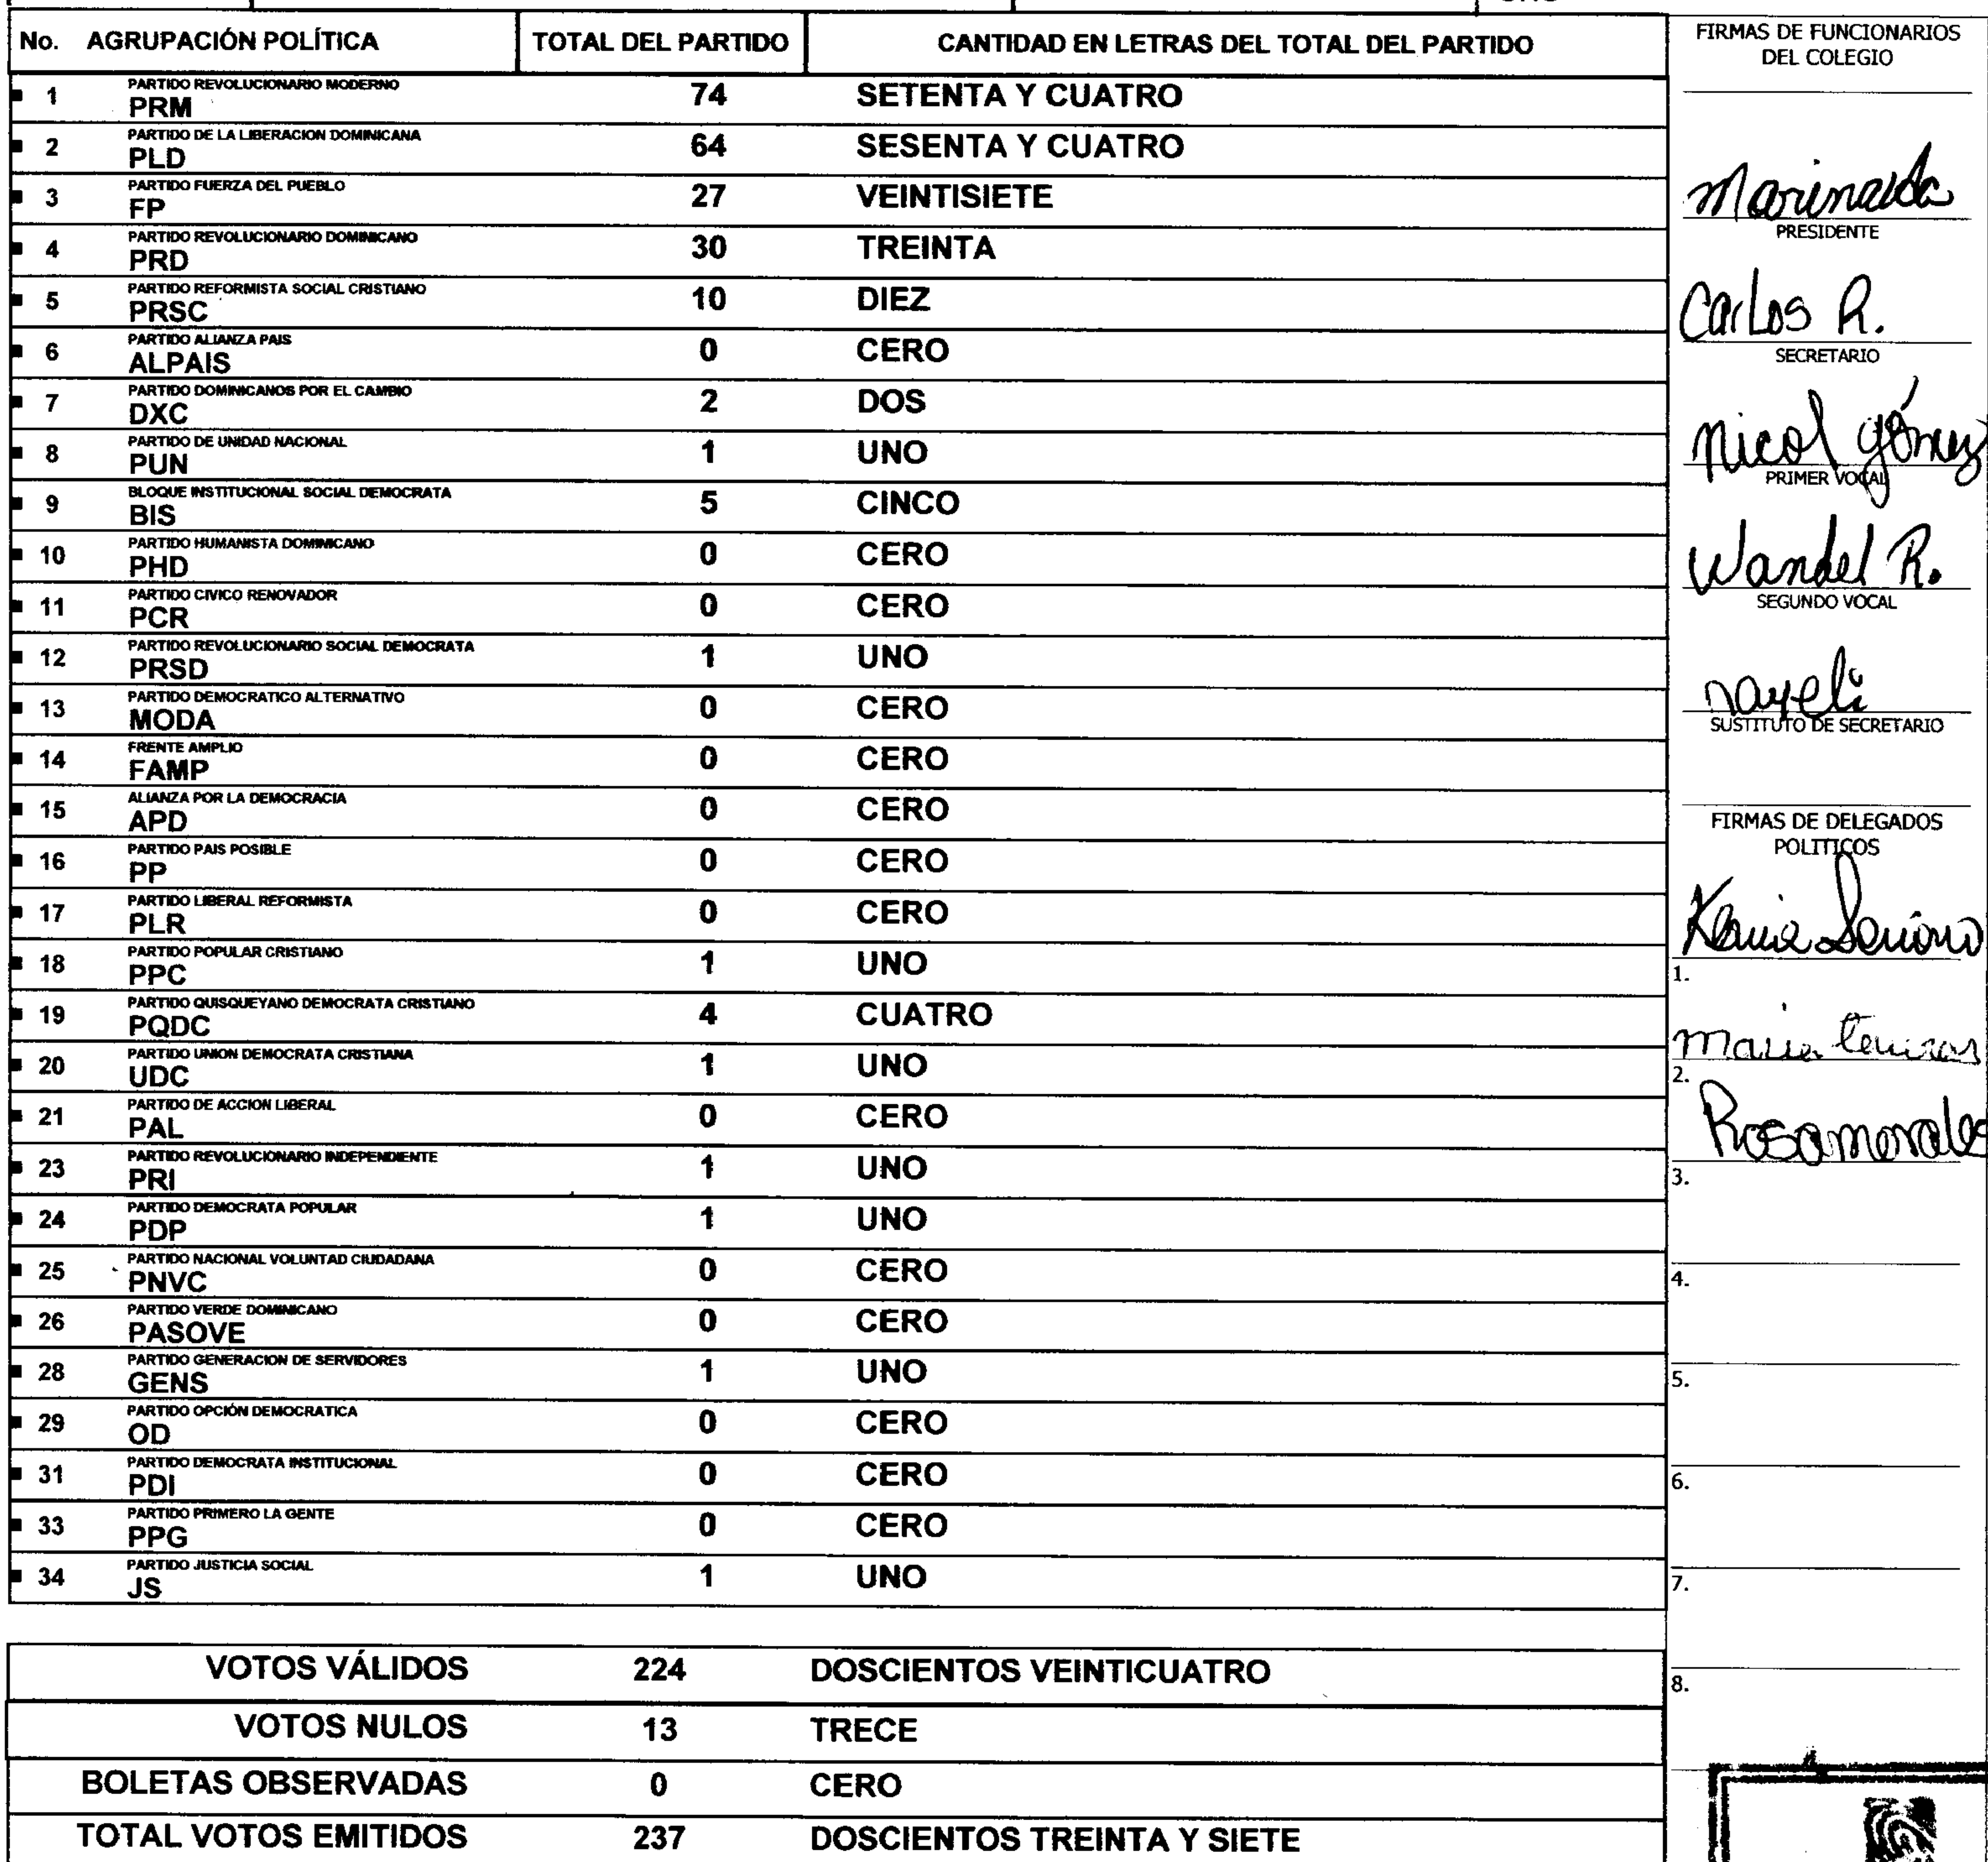 No. AGRUPACIÓN POLÍTICA TOTAL DEL PARTIDO CANTIDAD EN LETRAS DEL TOTAL DEL PARTIDO
PARTIDO REVOLUCIONARIO MODERNO
1 PRM 74 SETENTA Y CUATRO
PARTIDO DE LA LIBERACION DOMINICANA
2 PLD 64 SESENTA Y CUATRO
PARTIDO FUERZA DEL PUEBLO
3 FP 27 VEINTISIETE
PARTIDO REVOLUCIONARIO DOMINICANO
4 PRD 30 TREINTA
PARTIDO REFORMISTA SOCIAL CRISTIANO
5 PRSC 10 DIEZ
PARTIDO ALIANZA PAIS
6 ALPAIS 0 CERO
PARTIDO DOMINICANOS POR EL CAMBIO
7 DXC 2 DOS
PARTIDO DE UNIDAD NACIONAL
8 PUN 1 UNO
BLOQUE INSTITUCIONAL SOCIAL DEMOCRATA
9 BIS 5 CINCO
PARTIDO HUMANISTA DOMINICANO
10 PHD 0 CERO
PARTIDO CIVICO RENOVADOR
11 PCR 0 CERO
PARTIDO REVOLUCIONARIO SOCIAL DEMOCRATA
12 PRSD 1 UNO
PARTIDO DEMOCRATICO ALTERNATIVO
13 MODA 0 CERO
FRENTE AMPLIO
14 FAMP 0 CERO
ALIANZA POR LA DEMOCRACIA
15 APD 0 CERO
PARTIDO PAIS POSIBLE
16 PP 0 CERO
PARTIDO LIBERAL REFORMISTA
17 PLR 0 CERO
PARTIDO POPULAR CRISTIANO
18 PPC 1 UNO
PARTIDO QUISQUEYANO DEMOCRATA CRISTIANO
19 PQDC 4 CUATRO
PARTIDO UNION DEMOCRATA CRISTIANA
20 UDC 1 UNO
PARTIDO DE ACCION LIBERAL
21 PAL 0 CERO
PARTIDO REVOLUCIONARIO INDEPENDIENTE
23 PRI 1 UNO
PARTIDO DEMOCRATA POPULAR
24 PDP 1 UNO
PARTIDO NACIONAL VOLUNTAD CIUDADANA
25 PNVC 0 CERO
PARTIDO VERDE DOMINICANO
26 PASOVE 0 CERO
PARTIDO GENERACION DE SERVIDORES
28 GENS 1 UNO
PARTIDO OPCIÓN DEMOCRATICA
29 OD 0 CERO
PARTIDO DEMOCRATA INSTITUCIONAL
31 PDI 0 CERO
PARTIDO PRIMERO LA GENTE
33 PPG 0 CERO
PARTIDO JUSTICIA SOCIAL
34 JS 1 UNO
VOTOS VÁLIDOS 224 DOSCIENTOS VEINTICUATRO
VOTOS NULOS 13 TRECE
BOLETAS OBSERVADAS 0 CERO
TOTAL VOTOS EMITIDOS 237 DOSCIENTOS TREINTA Y SIETE
FIRMAS DE FUNCIONARIOS
DEL COLEGIO
PRESIDENTE
Carlos R.
SECRETARIO
Nicol gómez
PRIMER VOCAL
Wandel R.
SEGUNDO VOCAL
nayeli
SUSTITUTO DE SECRETARIO
FIRMAS DE DELEGADOS
POLITICOS
1.
maria
2.
Rosa morales
3.
4.
5.
6.
7.
8.